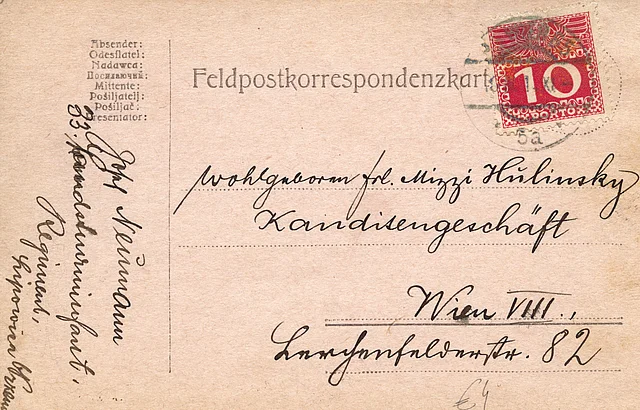 Absender:
Odesílatel:
Nadawca:
Mittente:
Pošiljatelj:
Pošiljač:
Presentator:
Feldpostkorrespondenzkarte
10
PORTO
5a
Wohlgeboren Frl. Mizzi Hulinsky
Kandisengeschäft
Wien VIII.,
Lerchenfelderstr. 82
Neumann
33. Landsturminfant.
Regiment,
€4